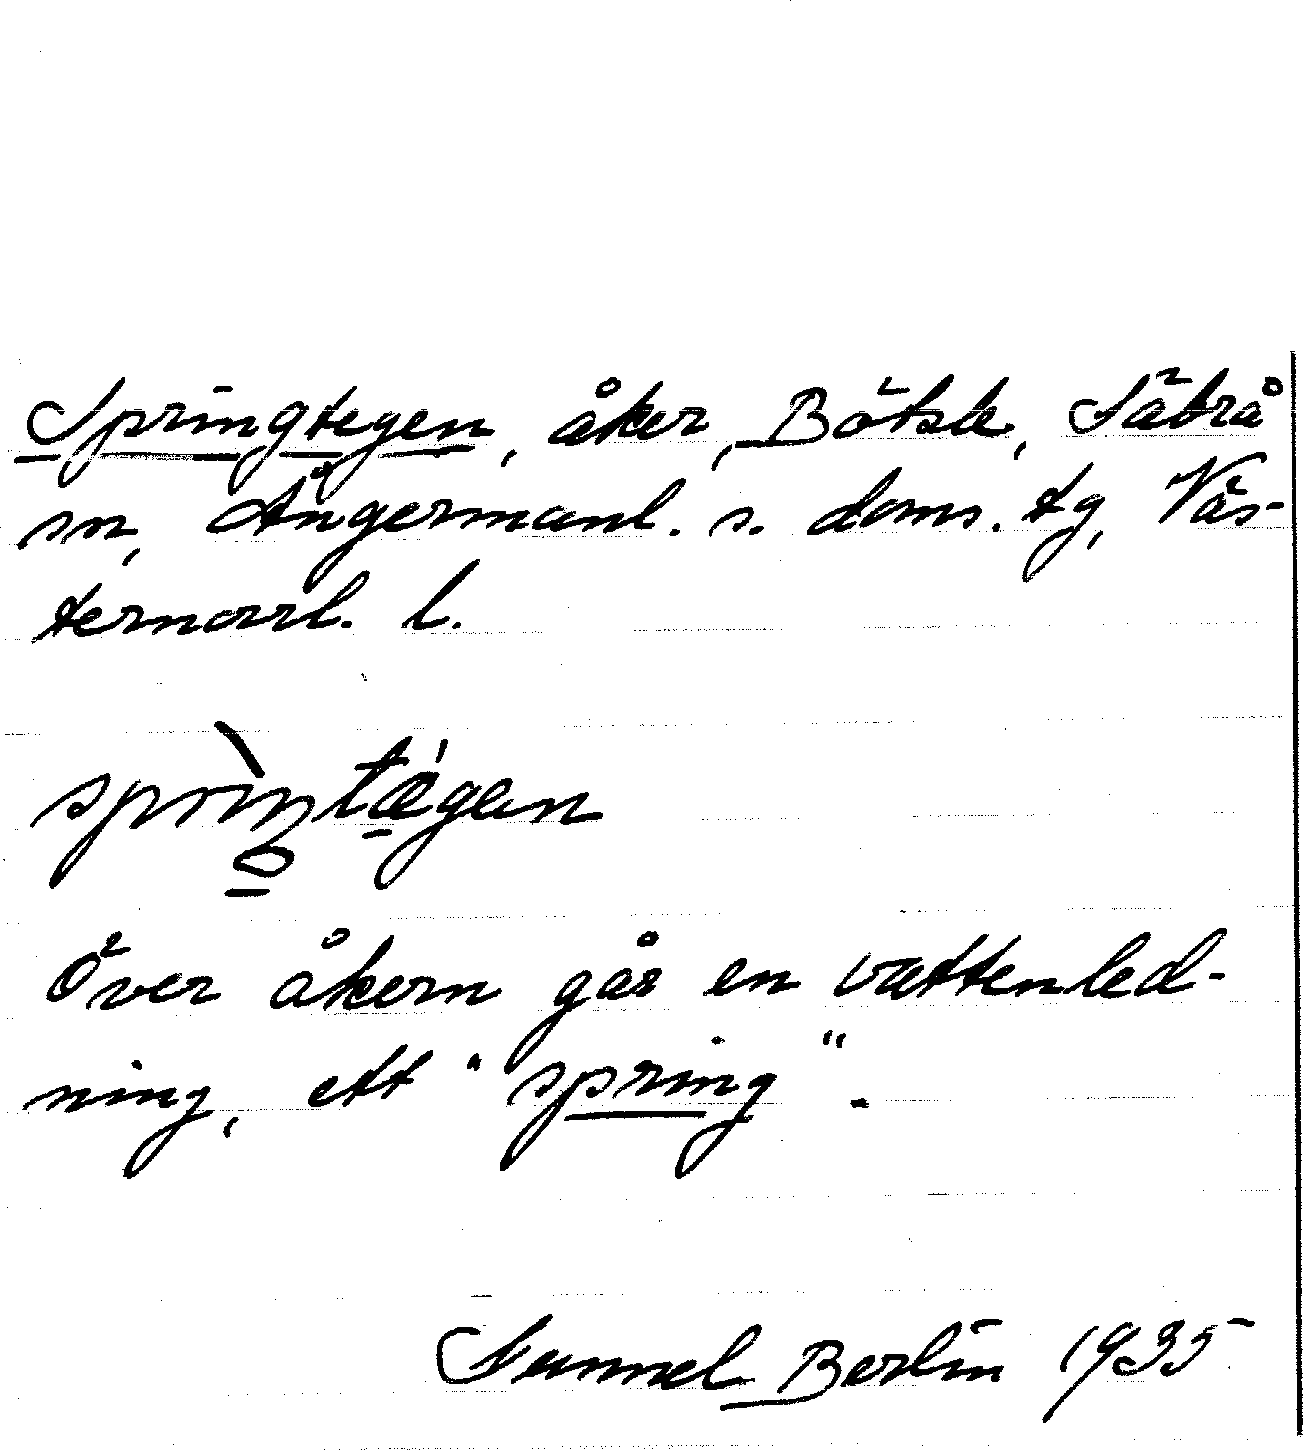 Springtegen, åker, Bölsle, Säbrå
sn, Ångermanl. s. doms. tg, Väs-
ternorrl. l.
Över åkern går en vattenled-
ning, ett "spring".
Sunnel Berlin 1935